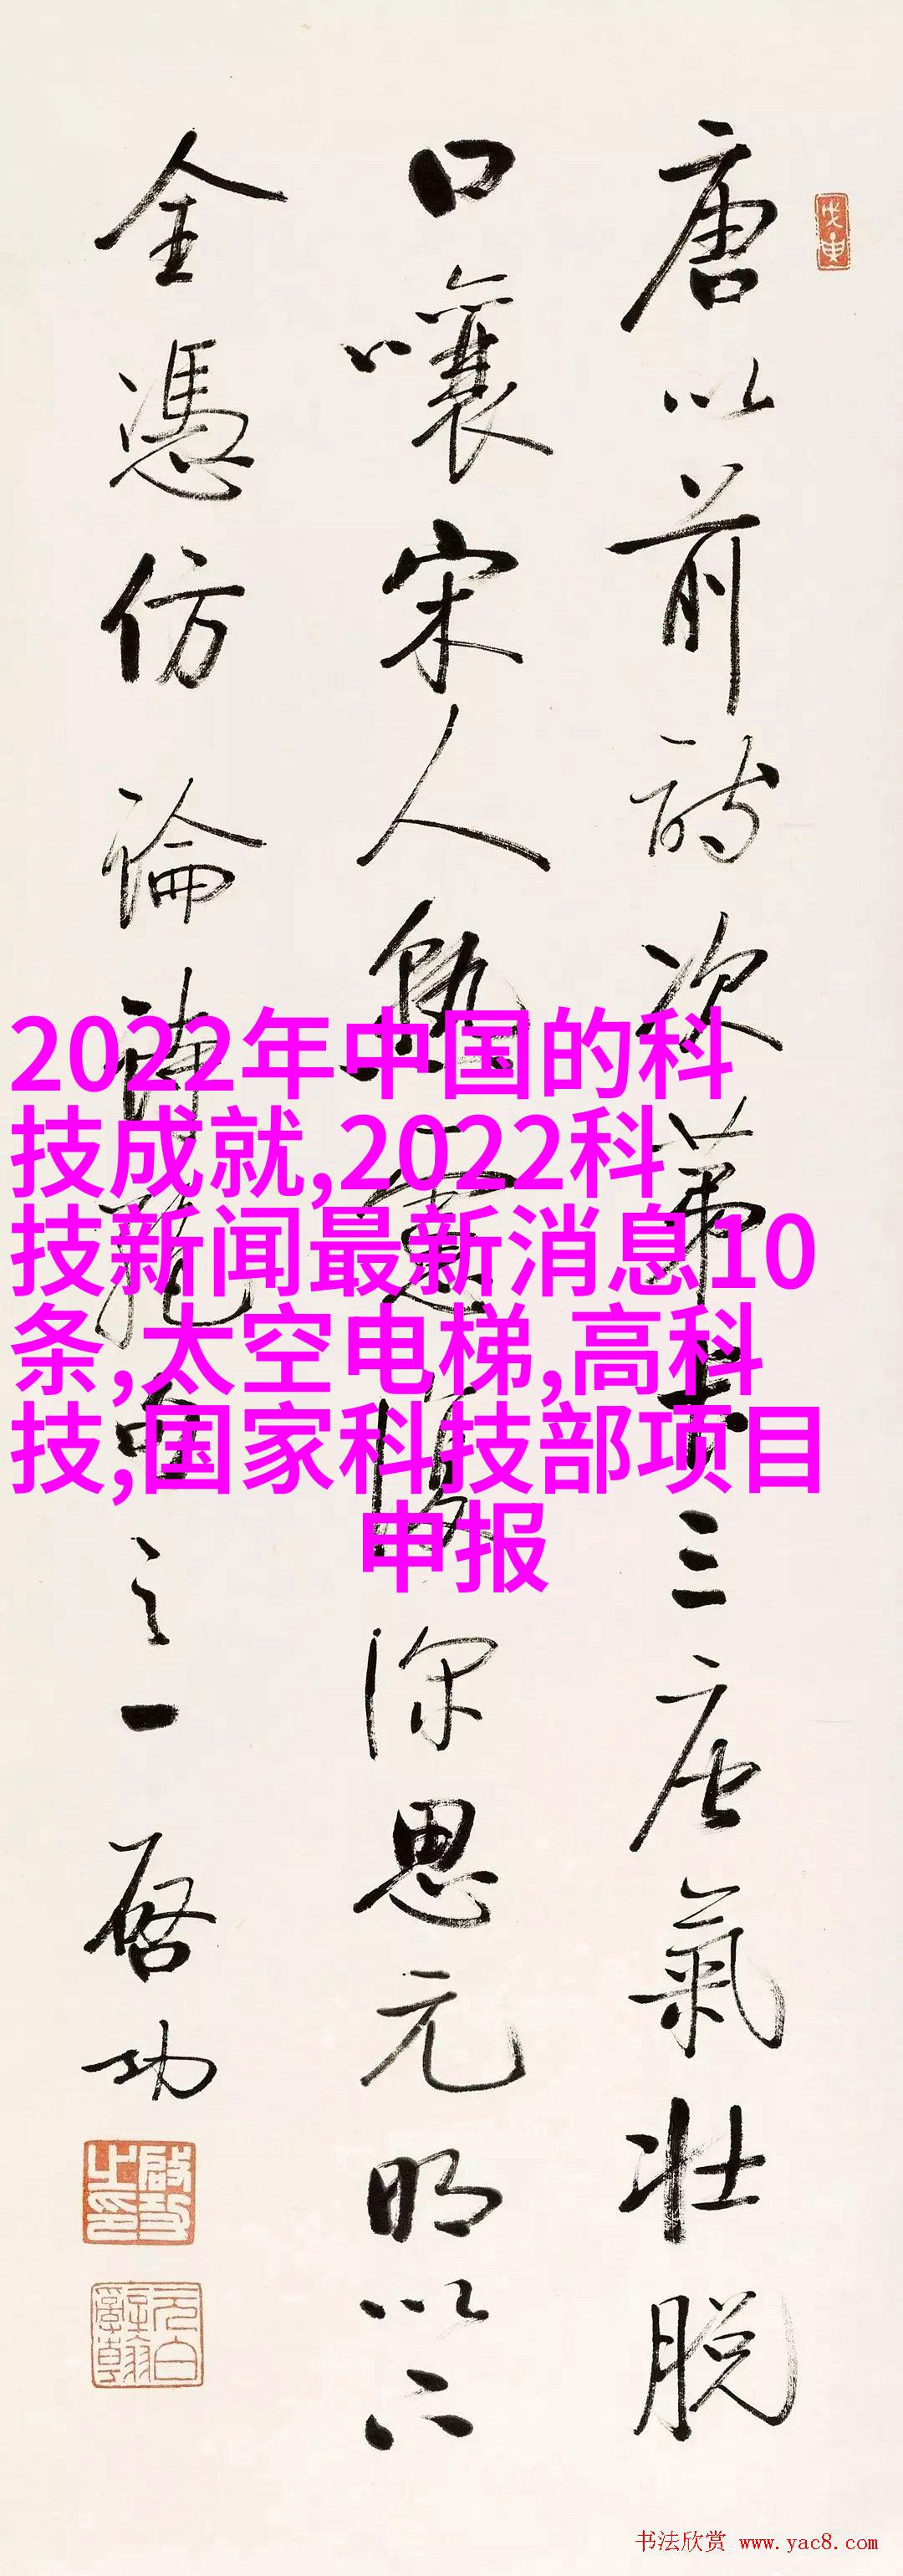 唐以前詩次第長三唐氣壯脫
口嚷宋人熟慮深思元明以下
全憑仿論詩絕句之一
啓功
2022年中国的科
技成就,2022科
技新闻最新消息10
条,太空电梯,高科
技,国家科技部项目
申报
书法欣赏 www.yac8.com